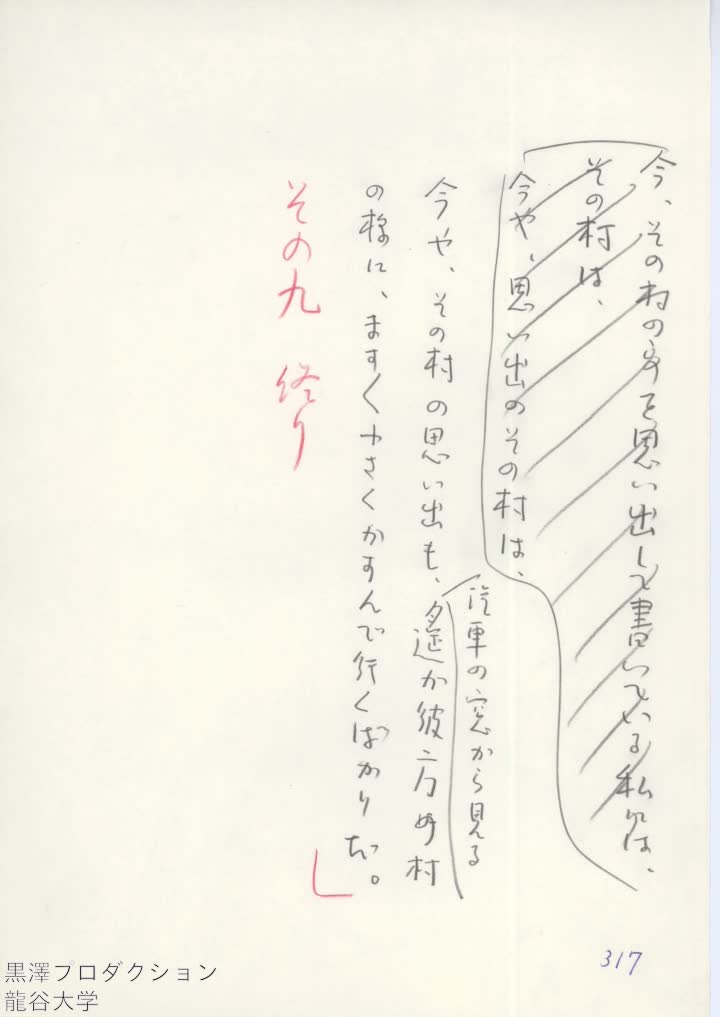 今、その村の事を思い出して書いている私には、
その村は、
今や、思い出のその村は、
汽車の窓から見る
今や、その村の思い出も、遥か彼方の村
の様に、ます〱小さくかすんで行くばかりだ。
その九 終り
317
黒澤プロダクション
龍谷大学